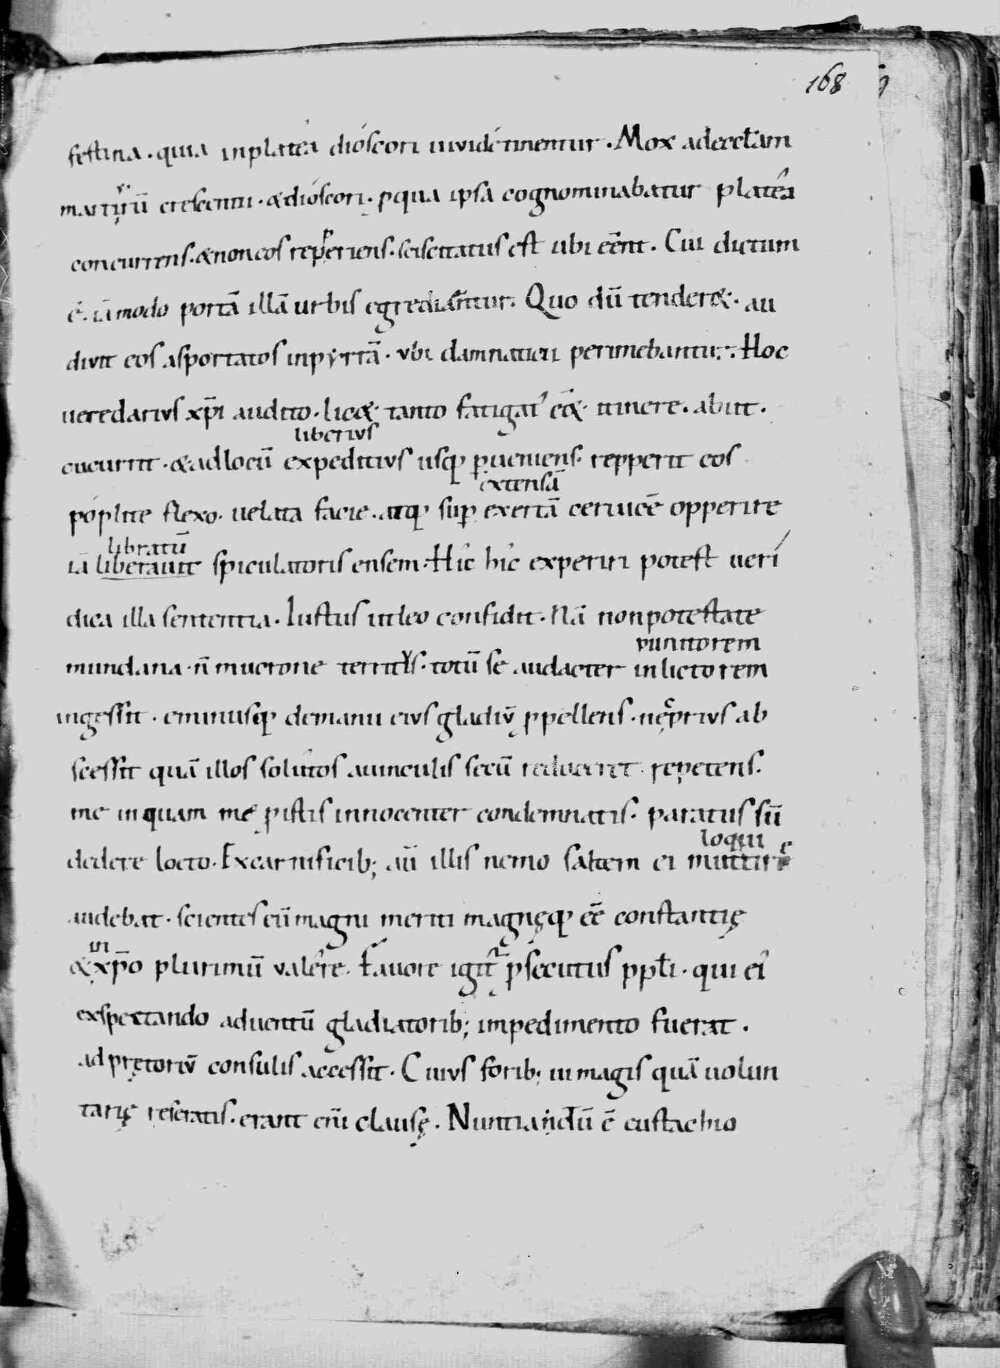 168
festina · quia inplatea dioscori iuvidetinentur · Mox ad erectam
martirũ crescentii · & dioscori · p qua ipsa cognominabatur platea
concurrens · & non eos repperiens · scisettatus est ubi eẽnt · Cui dictum
ẽ · iã modo portã illã urbis egrediantur · Quo dũ tender& · au
divit eos asportatos inpyrrã · ubi damnaticii perimebantur · Hoc
ueredarius xp̃i audito · lic& tanto fatigat' eẽ& itinere · abiit ·
liberius
cucurrit · & adlocũ expeditius usq; p̱ueniens · repperit eos
extensã
poplite flexo · uelata facie · atq; sup̱ exertã ceruicẽ opperire
libratũ
iã liberauit spiculatoris ensem · Hic hic experiri potest ueri
dica illa sententia · Iustus ut leo confidit · Nã non potestate
punitorem
mundana · ñ mucrone territus · totũ se audacter in lictorem
ingessit · eminusq; demanu eius gladiũ ppellens · nec prius ab
scessit quã illos solutos auinculis secũ reduceret · repetens ·
me inquam me pistis innocenter condemnatis · paratus sũ
loqui
dedere locto · Excarnificib; aũ illis nemo saltem ei muttire
audebat · scientes eũ magni meriti magnęq; eẽ constantię
in
& xp̃o plurimũ valere · Fauore igit̃ p̱secutus ppłi · qui ei
exspectando aduentũ gladiatorib; impedimento fuerat ·
ad pretoriũ consulis accessit · Cuius forib; ui magis quã uolun
tarię reseratis · erant eñi clausę · Nuntiandũ ẽ eustachio